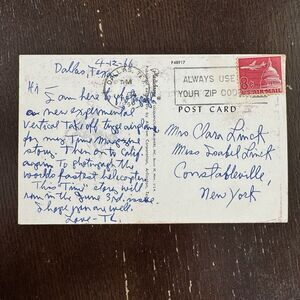 4-12-66
Dallas, Tex
Hi I am here to photograph
a new experimental
vertical take off type airplane
for my Time Magazine
story. Then on to
to photograph the
worlds fastest helicopter.
This "Time" story will
run in the June 3rd issue.
I hope you are well.
Love-
P48917
DALLAS, TEX
PM
ALWAYS USE
YOUR ZIP CODE
8¢
U.S. AIR MAIL
POST CARD
Miss Clara Linck
Miss Isabel Linck
Constableville,
New York